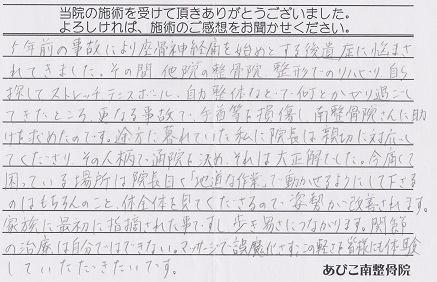 当院の施術を受けて頂きありがとうございました。
よろしければ、施術のご感想をお聞かせください。
5年前の事故により座骨神経痛を始めとする後遺症に悩まさ
れてきました。その間、他院の整骨院、整形でのリハビリ、自ら
探してストレッチ、テニスボール、自力整体などで何とかやり過ごし
てきたところ、更なる事故で、 を損傷し南整骨院さんに助
けを求めたのです。途方に暮れていた私に院長は親切に対応し
てくださり、その人柄で通院を決め、それは大正解でした。今痛くて
困っている場所は院長曰く「地道な作業」で動かせるようにして下さる
のはもちろんのこと、体全体を見てくださるので、姿勢が改善されます。
家族に最初に指摘された事ですし歩き易さにつながります。関節
の治療は自分ではできない。マッサージで誤魔化さずこの軽さを皆様にも体験
していただきたいです。
あびこ南整骨院